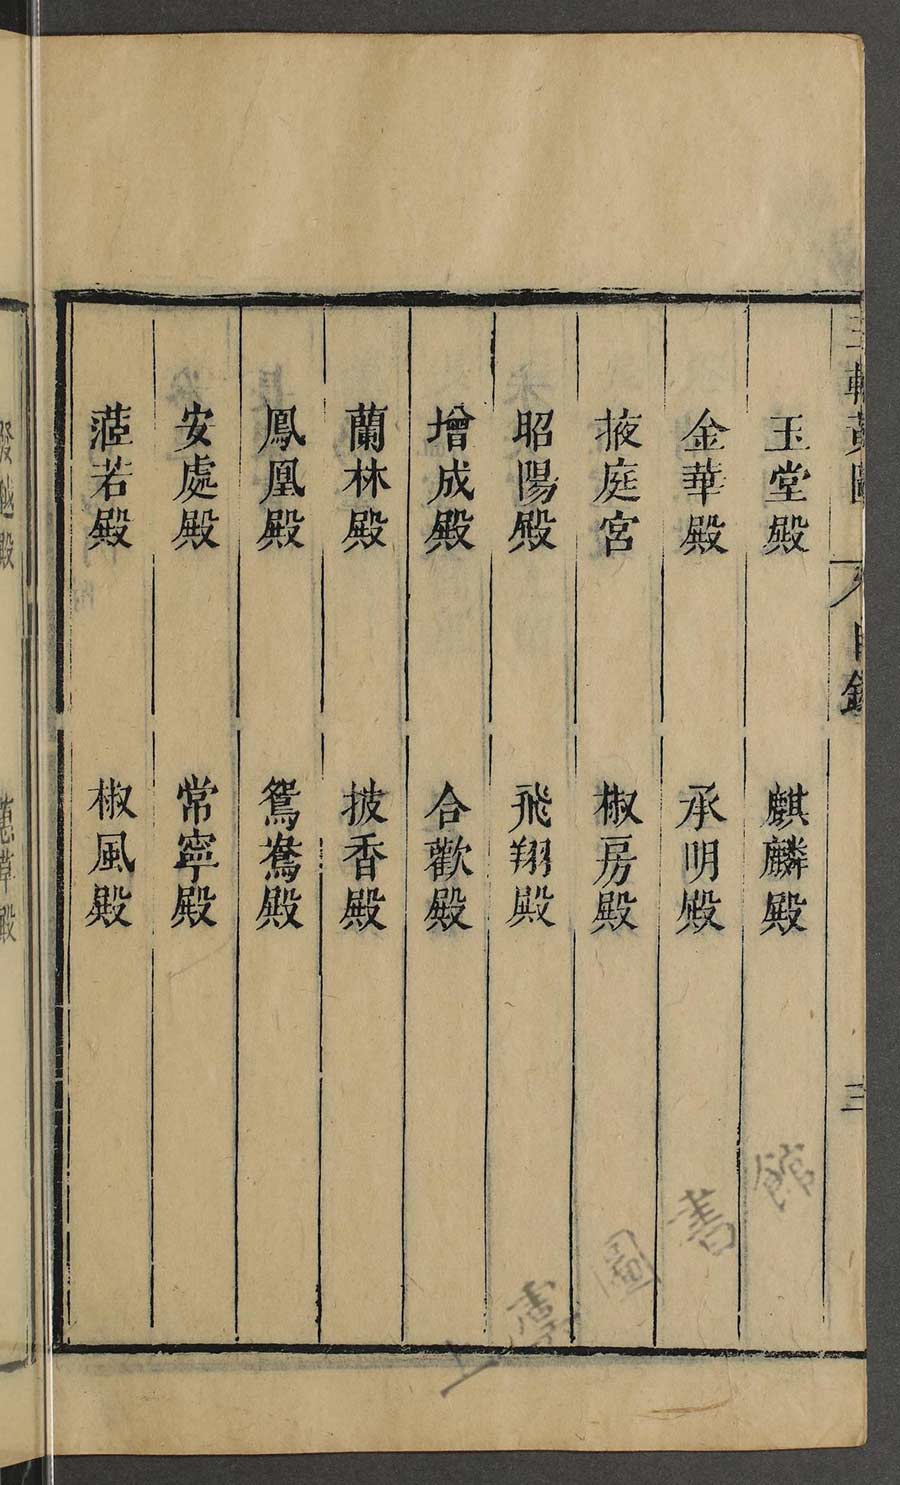 三輔黃圖 目錄 三
玉堂殿 麒麟殿
金華殿 承明殿
掖庭宮 椒房殿
昭陽殿 飛翔殿
增成殿 合歡殿
蘭林殿 披香殿
鳳凰殿 鴛鴦殿
安處殿 常寧殿
茝若殿 椒風殿
發越殿 蕙草殿
上海圖書館